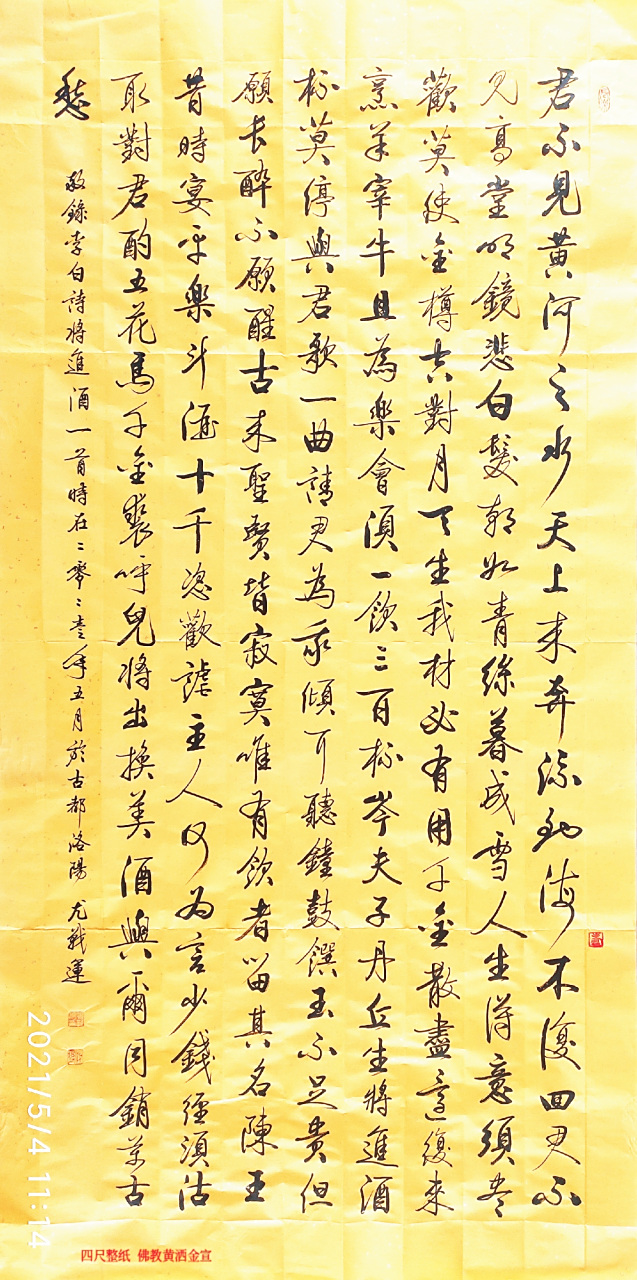 君不見黃河之水天上來奔流到海不復回君不
見高堂明鏡悲白髮朝如青絲暮成雪人生得意須尽
歡莫使金樽空對月天生我材必有用千金散盡還復來
烹羊宰牛且為樂會須一飲三百杯岑夫子丹丘生將進酒
杯莫停與君歌一曲請君為我傾耳聽鐘鼓饌玉不足貴但
願長醉不願醒古來聖賢皆寂寞唯有飲者留其名陳王
昔時宴平樂斗酒十千恣歡謔主人何為言少錢徑須沽
取對君酌五花馬千金裘呼兒將出換美酒與爾同銷萬古
愁
敬錄李白詩將進酒一首時在二零二壹年五月於古都洛陽 尤戰運
2021/5/4 11:14
四尺整纸 佛教黄洒金宣